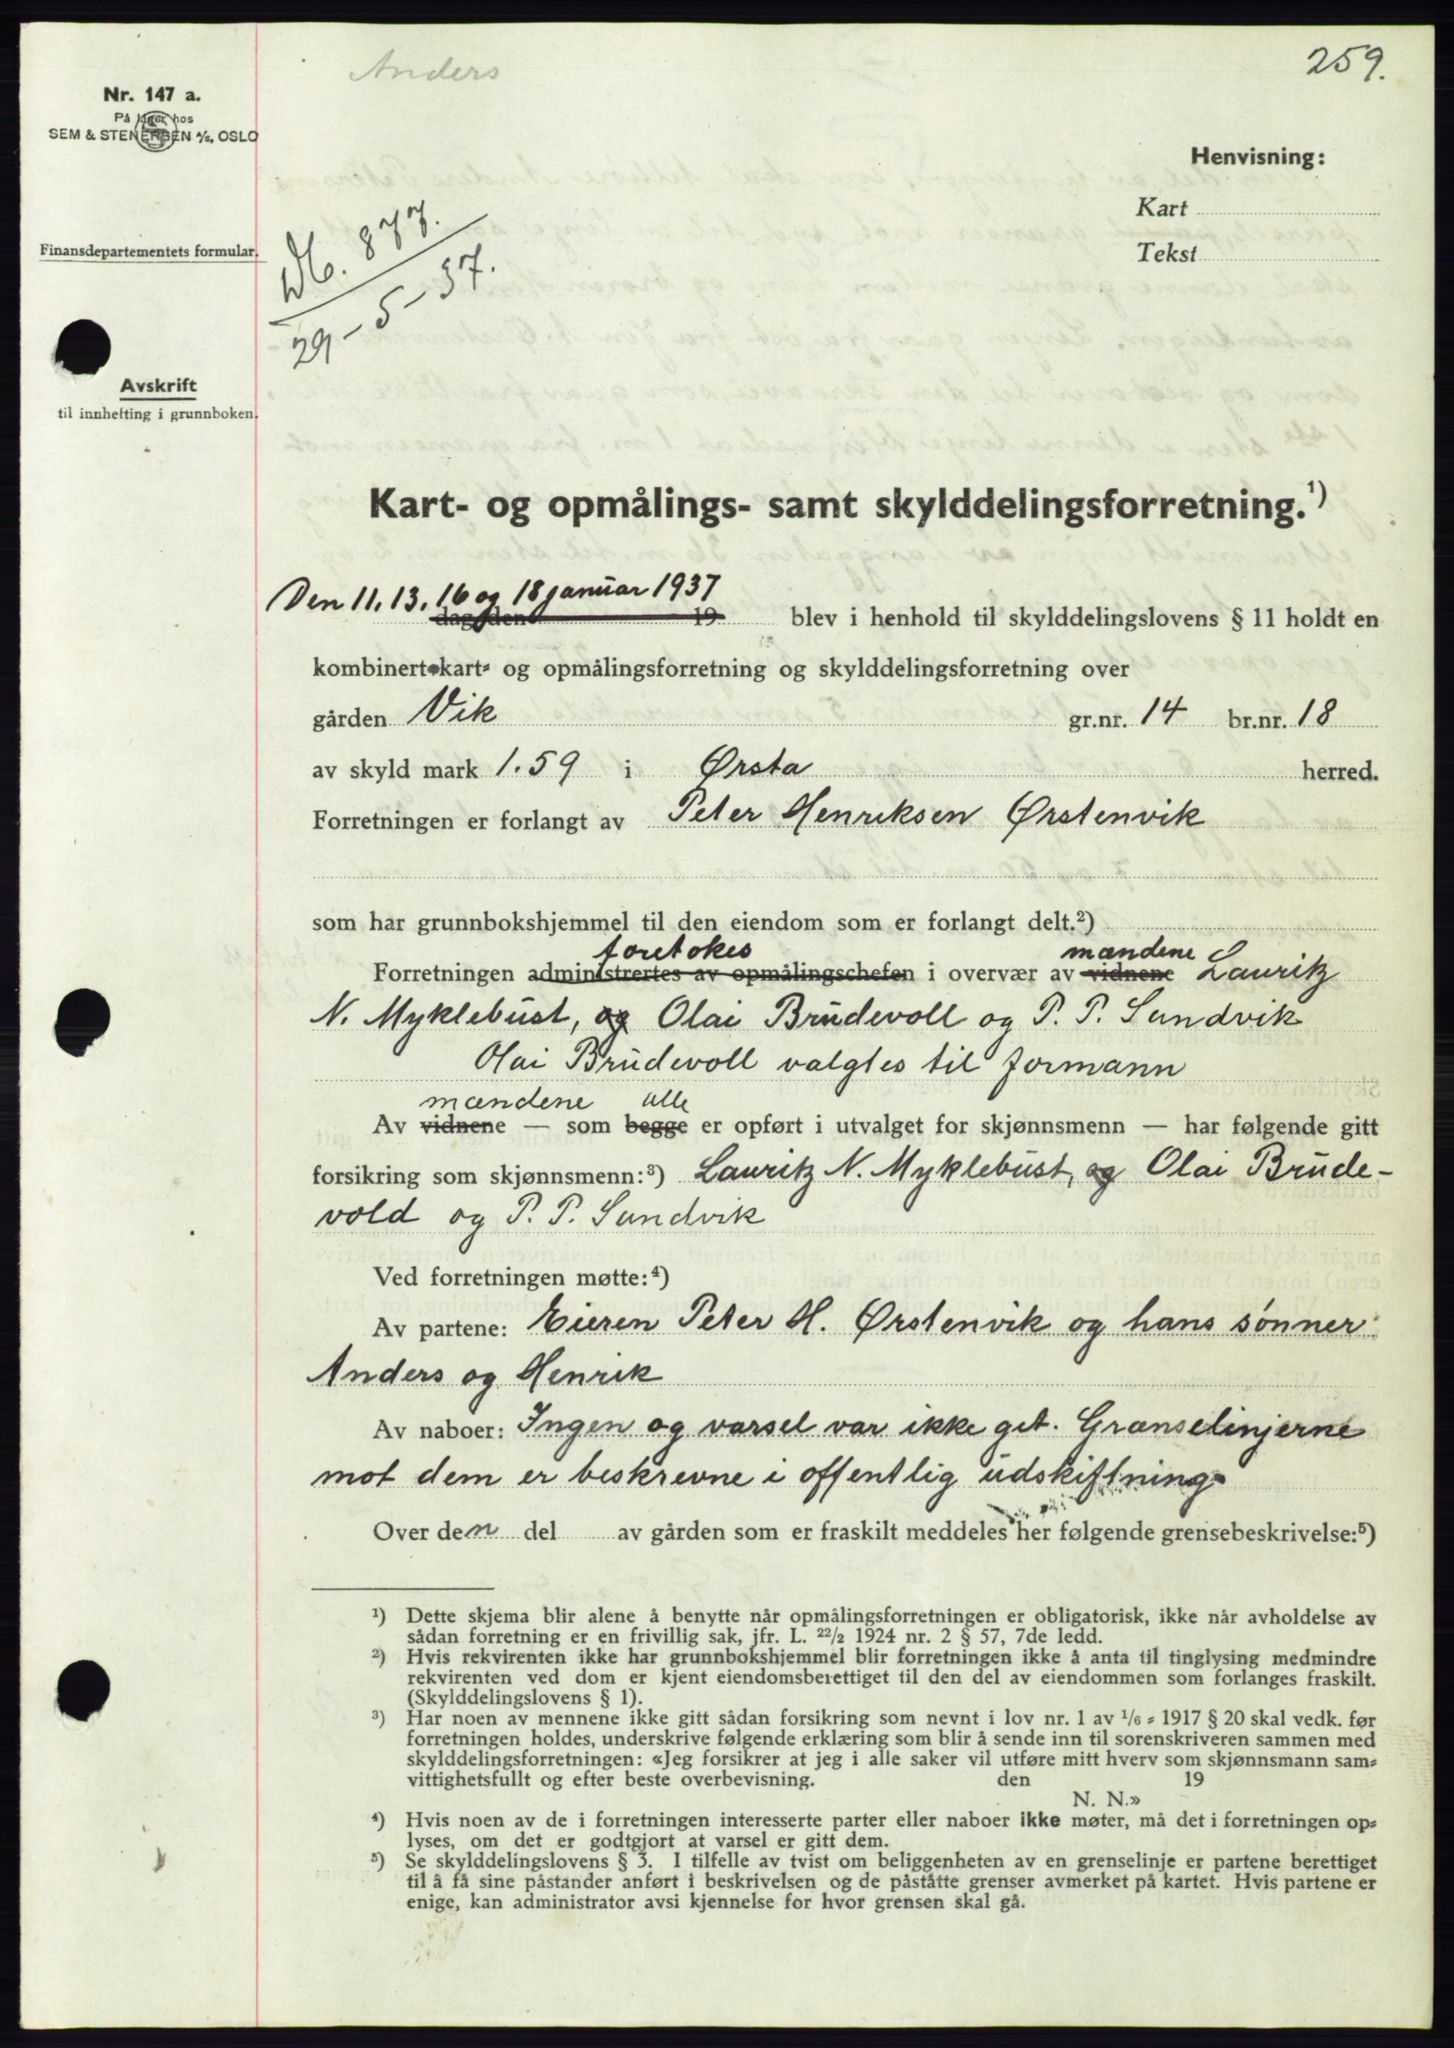 Anders
259.
Nr. 147 a.
På lager hos
SEM & STENERSEN A/S, OSLO
Henvisning:
Kart
Tekst
Finansdepartementets formular.
Db. 877.
29-5-37.
Avskrift
til innhefting i grunnboken.
Kart- og opmålings- samt skylddelingsforretning.¹)
Den 11, 13, 16 og 18 januar 1937
dag den 19 blev i henhold til skylddelingslovens § 11 holdt en
kombinert kart- og opmålingsforretning og skylddelingsforretning over
gården Vik gr.nr. 14 br.nr. 18
av skyld mark 1.59 i Ørsta herred.
Forretningen er forlangt av Peter Henriksen Ørstenvik
som har grunnbokshjemmel til den eiendom som er forlangt delt.²)
foretokes mændene
Forretningen administrertes av opmålingschefen i overvær av vidnene Lauritz
N. Myklebust, og Olai Brudevoll og P. P. Sundvik
Olai Brudevoll valgtes til formann
mændene alle
Av vidnene — som begge er opført i utvalget for skjønnsmenn — har følgende gitt
forsikring som skjønnsmenn:³) Lauritz N. Myklebust, og Olai Brude-
vold og P. P. Sundvik
Ved forretningen møtte:⁴)
Av partene: Eieren Peter H. Ørstenvik og hans sønner
Anders og Henrik
Av naboer: Ingen og varsel var ikke git. Grænselinjerne
mot dem er beskrevne i offentlig udskiftning.
Over den del av gården som er fraskilt meddeles her følgende grensebeskrivelse:⁵)
¹) Dette skjema blir alene å benytte når opmålingsforretningen er obligatorisk, ikke når avholdelse av
sådan forretning er en frivillig sak, jfr. L. 22/2 1924 nr. 2 § 57, 7de ledd.
²) Hvis rekvirenten ikke har grunnbokshjemmel blir forretningen ikke å anta til tinglysing medmindre
rekvirenten ved dom er kjent eiendomsberettiget til den del av eiendommen som forlanges fraskilt.
(Skylddelingslovens § 1).
³) Har noen av mennene ikke gitt sådan forsikring som nevnt i lov nr. 1 av 1/6 - 1917 § 20 skal vedk. før
forretningen holdes, underskrive følgende erklæring som blir å sende inn til sorenskriveren sammen med
skylddelingsforretningen: «Jeg forsikrer at jeg i alle saker vil utføre mitt hverv som skjønnsmann sam-
vittighetsfullt og efter beste overbevisning. den 19
N. N.»
⁴) Hvis noen av de i forretningen interesserte parter eller naboer ikke møter, må det i forretningen op-
lyses, om det er godtgjort at varsel er gitt dem.
⁵) Se skylddelingslovens § 3. I tilfelle av tvist om beliggenheten av en grenselinje er partene berettiget
til å få sine påstander anført i beskrivelsen og de påståtte grenser avmerket på kartet. Hvis partene er
enige, kan administrator avsi kjennelse for hvor grensen skal gå.